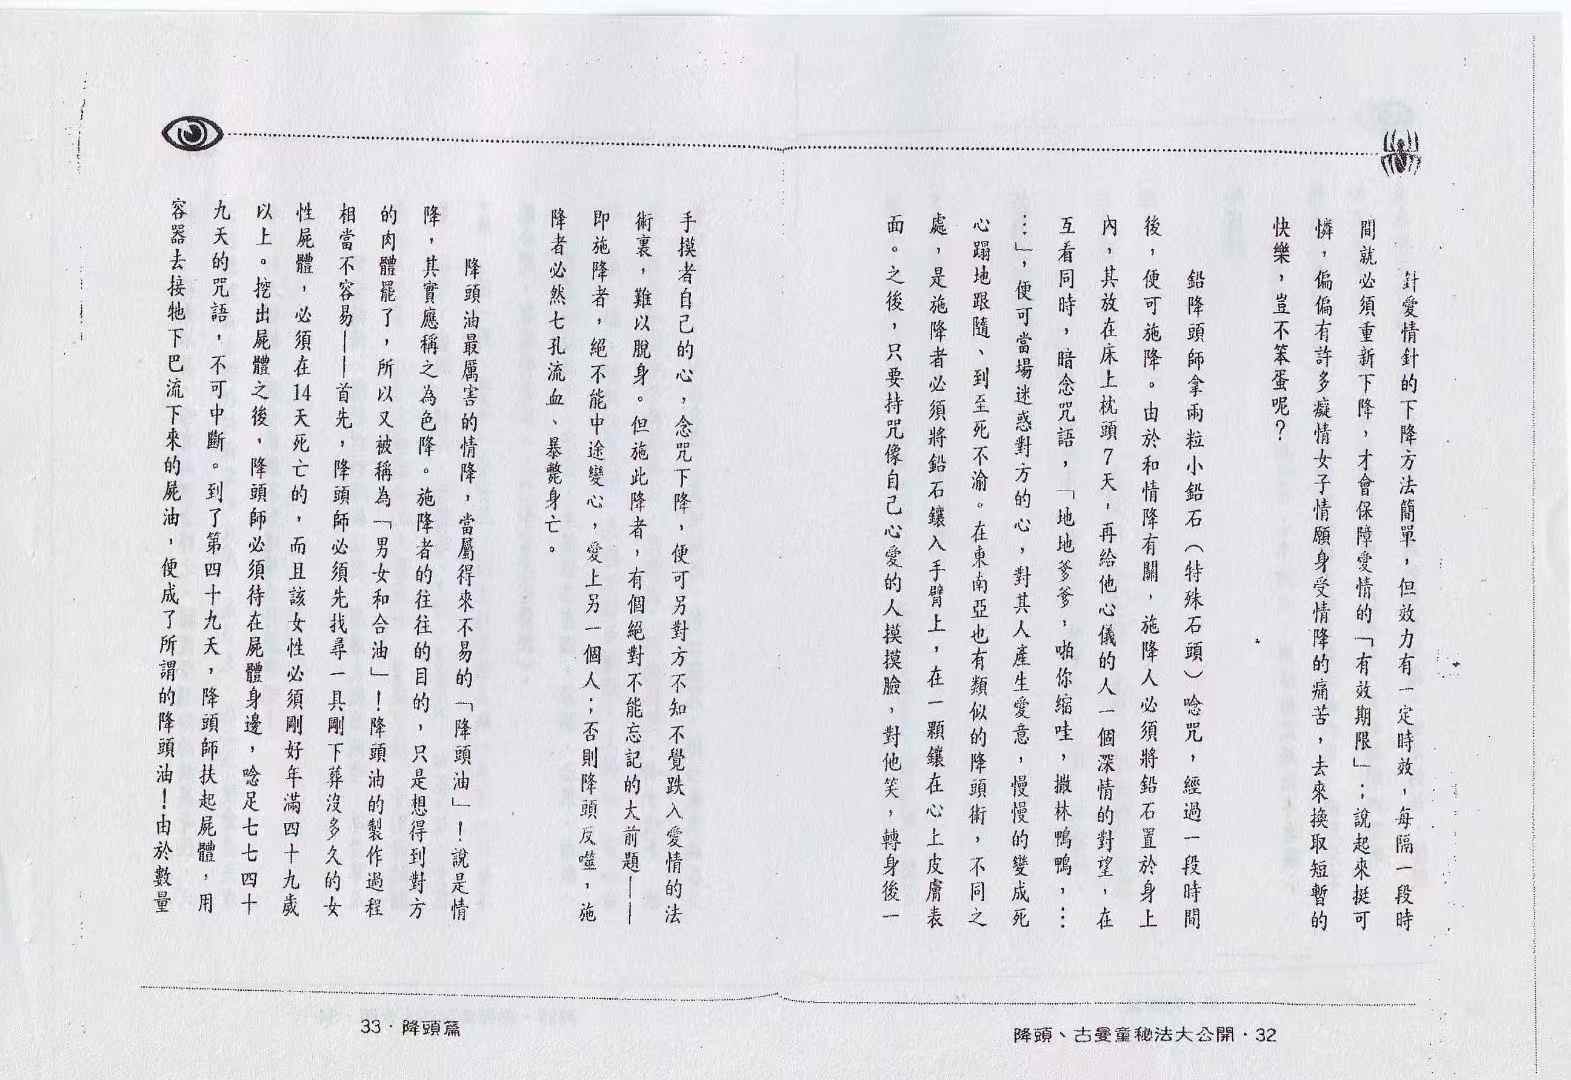 針愛情針的下降方法簡單，但效力有一定時效，每隔一段時
間就必須重新下降，才會保障愛情的「有效期限」；說起來挺可
憐，偏偏有許多癡情女子情願身受情降的痛苦，去來換取短暫的
快樂，豈不笨蛋呢？
鉛降頭師拿兩粒小鉛石（特殊石頭）唸咒，經過一段時間
後，便可施降。由於和情降有關，施降人必須將鉛石置於身上
內，其放在床上枕頭7天，再給他心儀的人一個深情的對望，在
互看同時，暗念咒語，「地地爹爹，啪你縮哇，撒林鴨鴨，…
…」，便可當場迷惑對方的心，對其人產生愛意，慢慢的變成死
心蹋地跟隨、到至死不渝。在東南亞也有類似的降頭術，不同之
處，是施降者必須將鉛石鑲入手臂上，在一顆鑲在心上皮膚表
面。之後，只要持咒像自己心愛的人摸摸臉，對他笑，轉身後一
降頭、古曼童秘法大公開·32
手摸者自己的心，念咒下降，便可另對方不知不覺跌入愛情的法
術裏，難以脫身。但施此降者，有個絕對不能忘記的大前題——
即施降者，絕不能中途變心，愛上另一個人；否則降頭反噬，施
降者必然七孔流血、暴斃身亡。
降頭油最厲害的情降，當屬得來不易的「降頭油」！說是情
降，其實應稱之為色降。施降者的往往的目的，只是想得到對方
的肉體罷了，所以又被稱為「男女和合油」！降頭油的製作過程
相當不容易——首先，降頭師必須先找尋一具剛下葬沒多久的女
性屍體，必須在14天死亡的，而且該女性必須剛好年滿四十九歲
以上。挖出屍體之後，降頭師必須待在屍體身邊，唸足七七四十
九天的咒語，不可中斷。到了第四十九天，降頭師扶起屍體，用
容器去接牠下巴流下來的屍油，便成了所謂的降頭油！由於數量
33·降頭篇